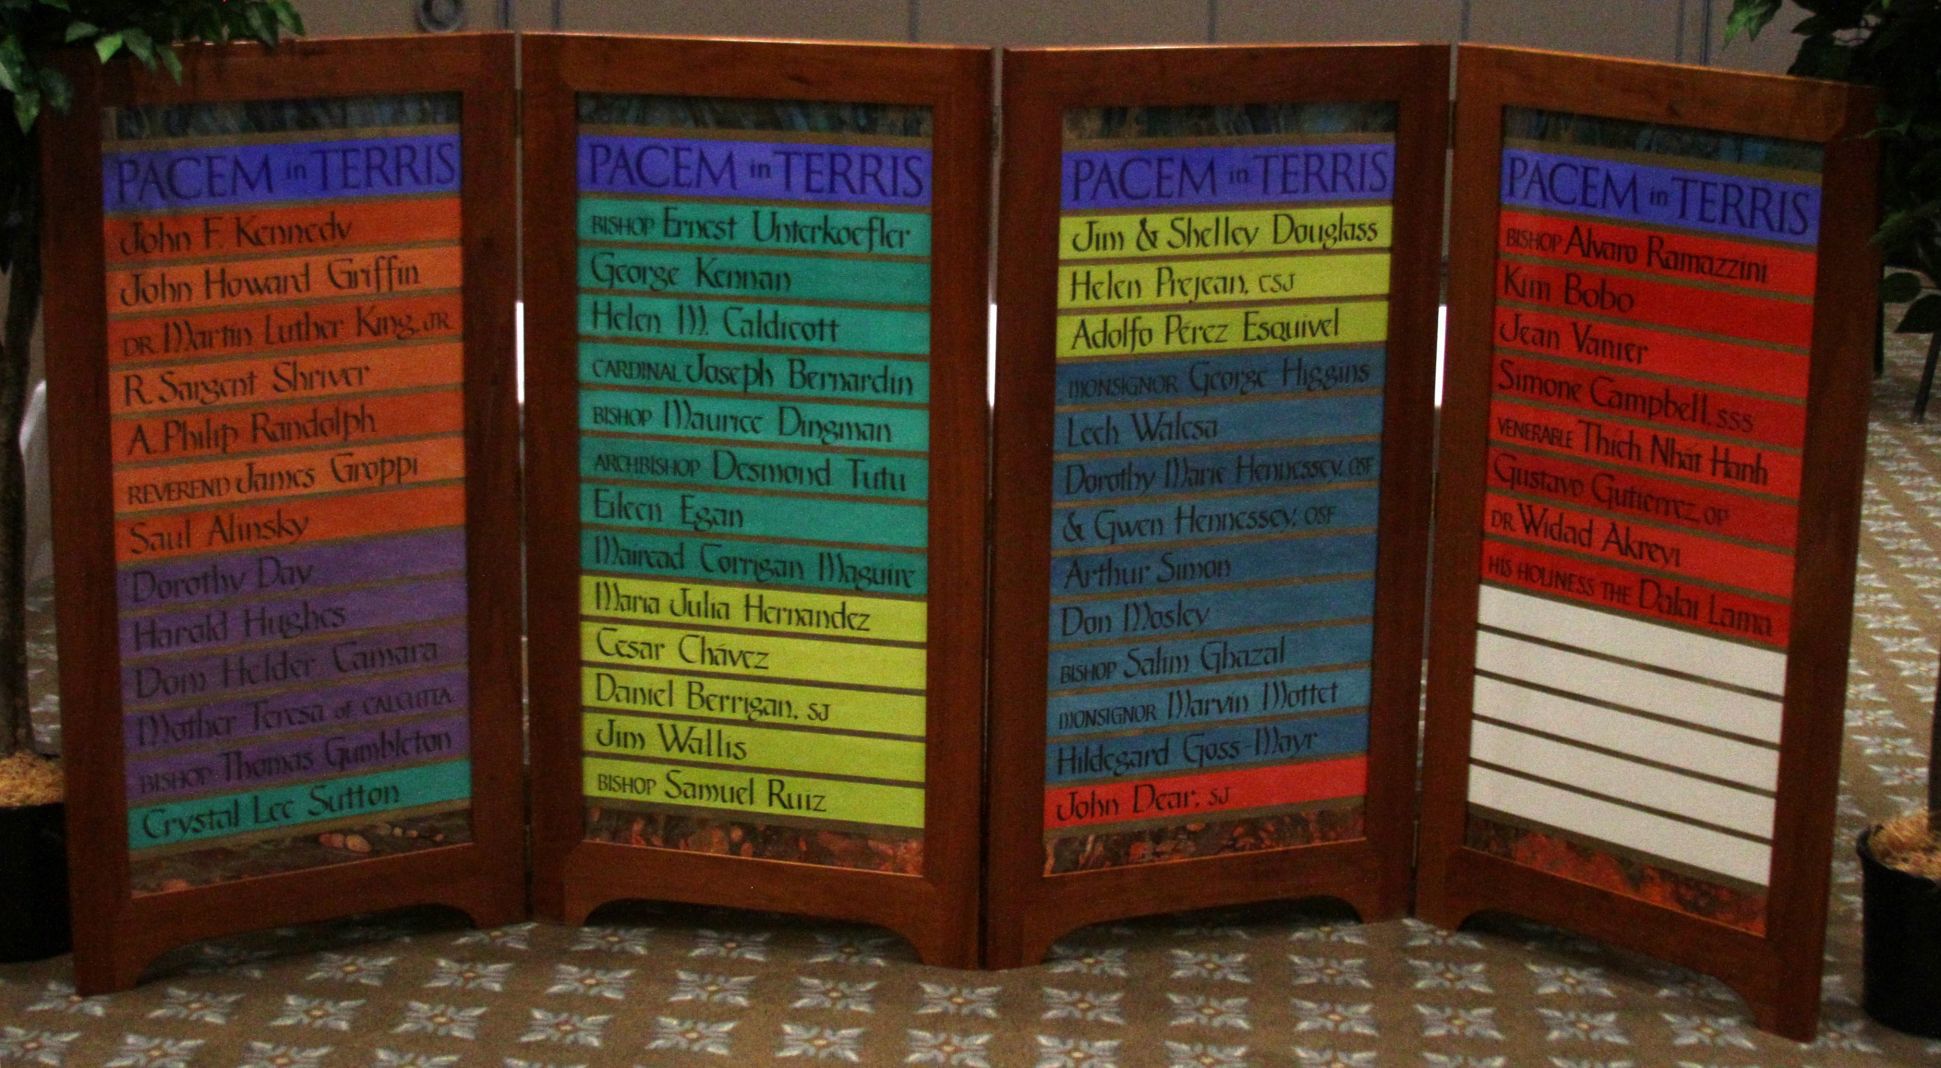 PACEM in TERRIS
John F. Kennedy
John Howard Griffin
DR. Martin Luther King, JR.
R. Sargent Shriver
A. Philip Randolph
REVEREND James Groppi
Saul Alinsky
Dorothy Day
Harold Hughes
Dom Helder Camara
Mother Teresa OF CALCUTTA
BISHOP Thomas Gumbleton
Crystal Lee Sutton
PACEM in TERRIS
BISHOP Ernest Unterkoefler
George Kennan
Helen M. Caldicott
CARDINAL Joseph Bernardin
BISHOP Maurice Dingman
ARCHBISHOP Desmond Tutu
Eileen Egan
Mairead Corrigan Maguire
Maria Julia Hernandez
Cesar Chávez
Daniel Berrigan, SJ
Jim Wallis
BISHOP Samuel Ruiz
PACEM in TERRIS
Jim & Shelley Douglass
Helen Prejean, CSJ
Adolfo Pérez Esquivel
MONSIGNOR George Higgins
Lech Walesa
Dorothy Marie Hennessey, OSF
& Gwen Hennessey, OSF
Arthur Simon
Don Mosley
BISHOP Salim Ghazal
MONSIGNOR Marvin Mottet
Hildegard Goss-Mayr
John Dear, SJ
PACEM in TERRIS
BISHOP Alvaro Ramazzini
Kim Bobo
Jean Vanier
Simone Campbell, SSS
VENERABLE Thích Nhất Hanh
Gustavo Gutierrez, OP
DR. Widad Akreyi
HIS HOLINESS THE Dalai Lama